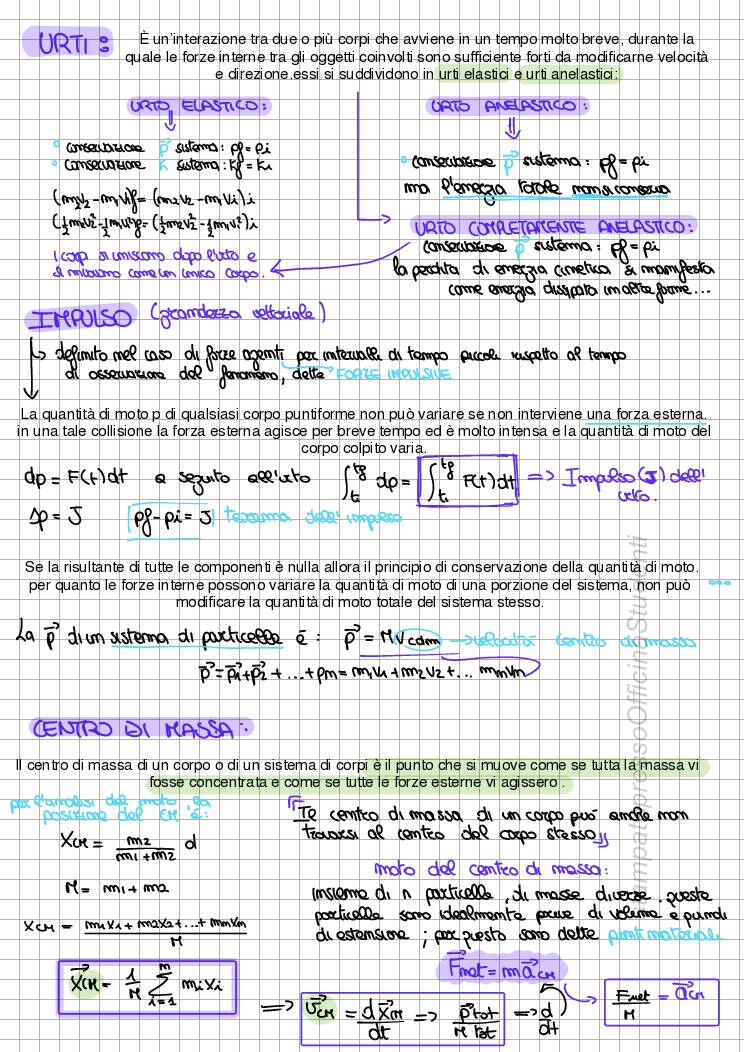 URTI:
È un'interazione tra due o più corpi che avviene in un tempo molto breve, durante la
quale le forze interne tra gli oggetti coinvolti sono sufficiente forti da modificarne velocità
e direzione.essi si suddividono in urti elastici e urti anelastici:
URTO ELASTICO:
URTO ANELASTICO:
° conservazione p⃗ sistema: pf = pi
° conservazione K sistema: Kf = Ki
° conservazione p⃗ sistema: pf = pi
ma l'energia totale non si conserva
(m2v2 - m1v1)f = (m2v2 - m1v1)i
(½m2v2² - ½m1v1²)f = (½m2v2² - ½m1v1²)i
URTO COMPLETAMENTE ANELASTICO:
conservazione p⃗ sistema: pf = pi
I corpi si uniscono dopo l'urto e
si muovono come un unico corpo.
la perdita di energia cinetica si manifesta
come energia dissipata in altre forme...
IMPULSO (grandezza vettoriale)
definito nel caso di forze agenti per intervalli di tempo piccoli rispetto al tempo
di osservazione del fenomeno, dette FORZE IMPULSIVE
La quantità di moto p di qualsiasi corpo puntiforme non può variare se non interviene una forza esterna.
in una tale collisione la forza esterna agisce per breve tempo ed è molto intensa e la quantità di moto del
corpo colpito varia.
dp = F(t)dt e seguito all'urto ∫ti^tf dp = ∫ti^tf F(t)dt => Impulso (J) dell'
urto.
Δp = J pf - pi = J teorema dell'impulso
Se la risultante di tutte le componenti è nulla allora il principio di conservazione della quantità di moto.
per quanto le forze interne possono variare la quantità di moto di una porzione del sistema, non può
modificare la quantità di moto totale del sistema stesso.
La p⃗ di un sistema di particelle è: p⃗ = M vcdm → velocità centro di massa
p⃗ = p⃗1 + p⃗2 + ... + pn = m1v1 + m2v2 + ... mnvn
CENTRO DI MASSA:
Il centro di massa di un corpo o di un sistema di corpi è il punto che si muove come se tutta la massa vi
fosse concentrata e come se tutte le forze esterne vi agissero .
per l'analisi del moto, la
posizione del CM è:
XCM = m2/(m1+m2) d
M = m1 + m2
XCM = (m1x1 + m2x2 + ... + mnxn)/M
X⃗CM = 1/M Σ i=1 n mixi
Il centro di massa di un corpo può anche non
trovarsi al centro del corpo stesso
moto del centro di massa:
insieme di n particelle, di masse diverse. queste
particelle sono idealmente prive di volume e quindi
di estensione; per questo sono dette punti materiali
F⃗net = m a⃗CM
=> v⃗CM = dX⃗CM/dt => p⃗tot/M tot => d/dt
Fnet/M = a⃗CM
Stampato presso Officina Studenti